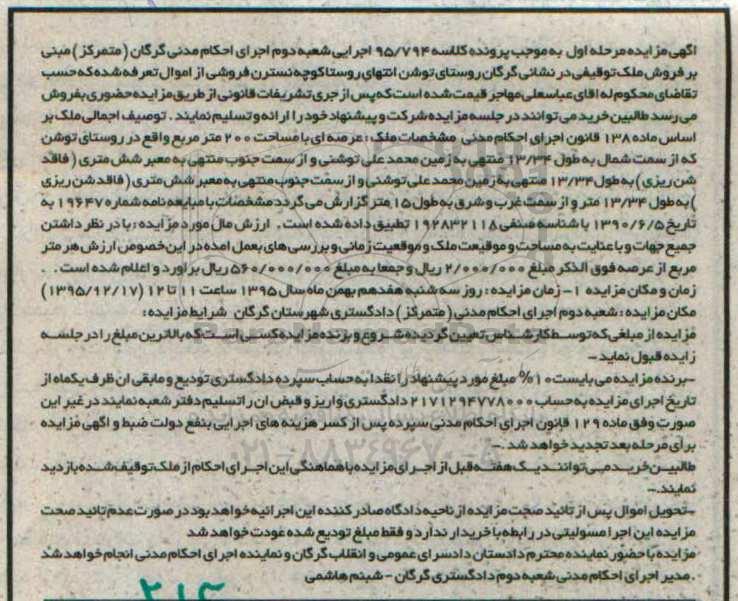 آگهی مزایده مرحله اول به موجب پرونده کلاسه ۹۵/۷۹۴ اجرایی شعبه دوم اجرای احکام مدنی گرگان (متمرکز) مبنی
بر فروش ملک توقیفی در نشانی گرگان روستای توشن انتهای روستا کوچه نسترن فروشی از اموال تعرفه شده که حسب
تقاضای محکوم له اقای عباسعلی مهاجر قیمت شده است که پس از جری تشریفات قانونی از طریق مزایده حضوری بفروش
می رسد طالبین خرید می توانند در جلسه مزایده شرکت و پیشنهاد خود را ارائه و تسلیم نمایند . توصیف اجمالی ملک بر
اساس ماده ۱۳۸ قانون اجرای احکام مدنی مشخصات ملک : عرصه ای با مساحت ۲۰۰ متر مربع واقع در روستای توشن
که از سمت شمال به طول ۱۳/۳۴ منتهی به زمین محمد علی توشنی و از سمت جنوب منتهی به معبر شش متری (فاقد
شن ریزی) به طول ۱۳/۳۴ منتهی به زمین محمد علی توشنی و از سمت جنوب منتهی به معبر شش متری (فاقد شن ریزی
) به طول ۱۳/۳۴ متر و از سمت غرب و شرق به طول ۱۵ متر گزارش می گردد مشخصات با مبایعه نامه شماره ۱۹۶۴۷ به
تاریخ ۱۳۹۰/۶/۵ با شناسه صنفی ۱۹۲۸۳۲۱۱۸ تطبیق داده شده است . ارزش مال مورد مزایده : با در نظر داشتن
جمیع جهات و با عنایت به مساحت و موقیعت ملک و موقعیت زمانی و بررسی های بعمل امده در این خصوص ارزش هر متر
مربع از عرصه فوق الذکر مبلغ ۲/۰۰۰/۰۰۰ ریال و جمعا به مبلغ ۵۶۰/۰۰۰/۰۰۰ ریال براورد و اعلام شده است . .
زمان و مکان مزایده ۱- زمان مزایده : روز سه شنبه هفدهم بهمن ماه سال ۱۳۹۵ ساعت ۱۱ تا ۱۲ (۱۳۹۵/۱۲/۱۷)
مکان مزایده : شعبه دوم اجرای احکام مدنی (متمرکز) دادگستری شهرستان گرگان شرایط مزایده :
مزایده از مبلغی که توسط کارشناس تعیین گردیده شروع و برنده مزایده کسی است که بالاترین مبلغ را در جلسه
زایده قبول نماید -
-برنده مزایده می بایست ۱۰% مبلغ مورد پیشنهاد را نقدا به حساب سپرده دادگستری تودیع و مابقی ان ظرف یکماه از
تاریخ اجرای مزایده به حساب ۲۱۷۱۲۹۴۷۷۸۰۰۰ دادگستری واریز و قبض ان را تسلیم دفتر شعبه نمایند در غیر این
صورت وفق ماده ۱۲۹ قانون اجرای احکام مدنی سپرده پس از کسر هزینه های اجرایی بنفع دولت ضبط و اگهی مزایده
برای مرحله بعد تجدید خواهد شد .-
طالبین خرید می توانند یک هفته قبل از اجرای مزایده با هماهنگی این اجرای احکام از ملک توقیف شده بازدید
نمایند.-
-تحویل اموال پس از تائید صحت مزایده از ناحیه دادگاه صادر کننده این اجرائیه خواهد بود در صورت عدم تائید صحت
مزایده این اجرا مسولیتی در رابطه با خریدار ندارد و فقط مبلغ تودیع شده عودت خواهد شد
مزایده با حضور نماینده محترم دادستان دادسرای عمومی و انقلاب گرگان و نماینده اجرای احکام مدنی انجام خواهد شد
. مدیر اجرای احکام مدنی شعبه دوم دادگستری گرگان - شبنم هاشمی
۰۲۱-۸۸۳۴۹۶۷۰-۵
۲۱۴